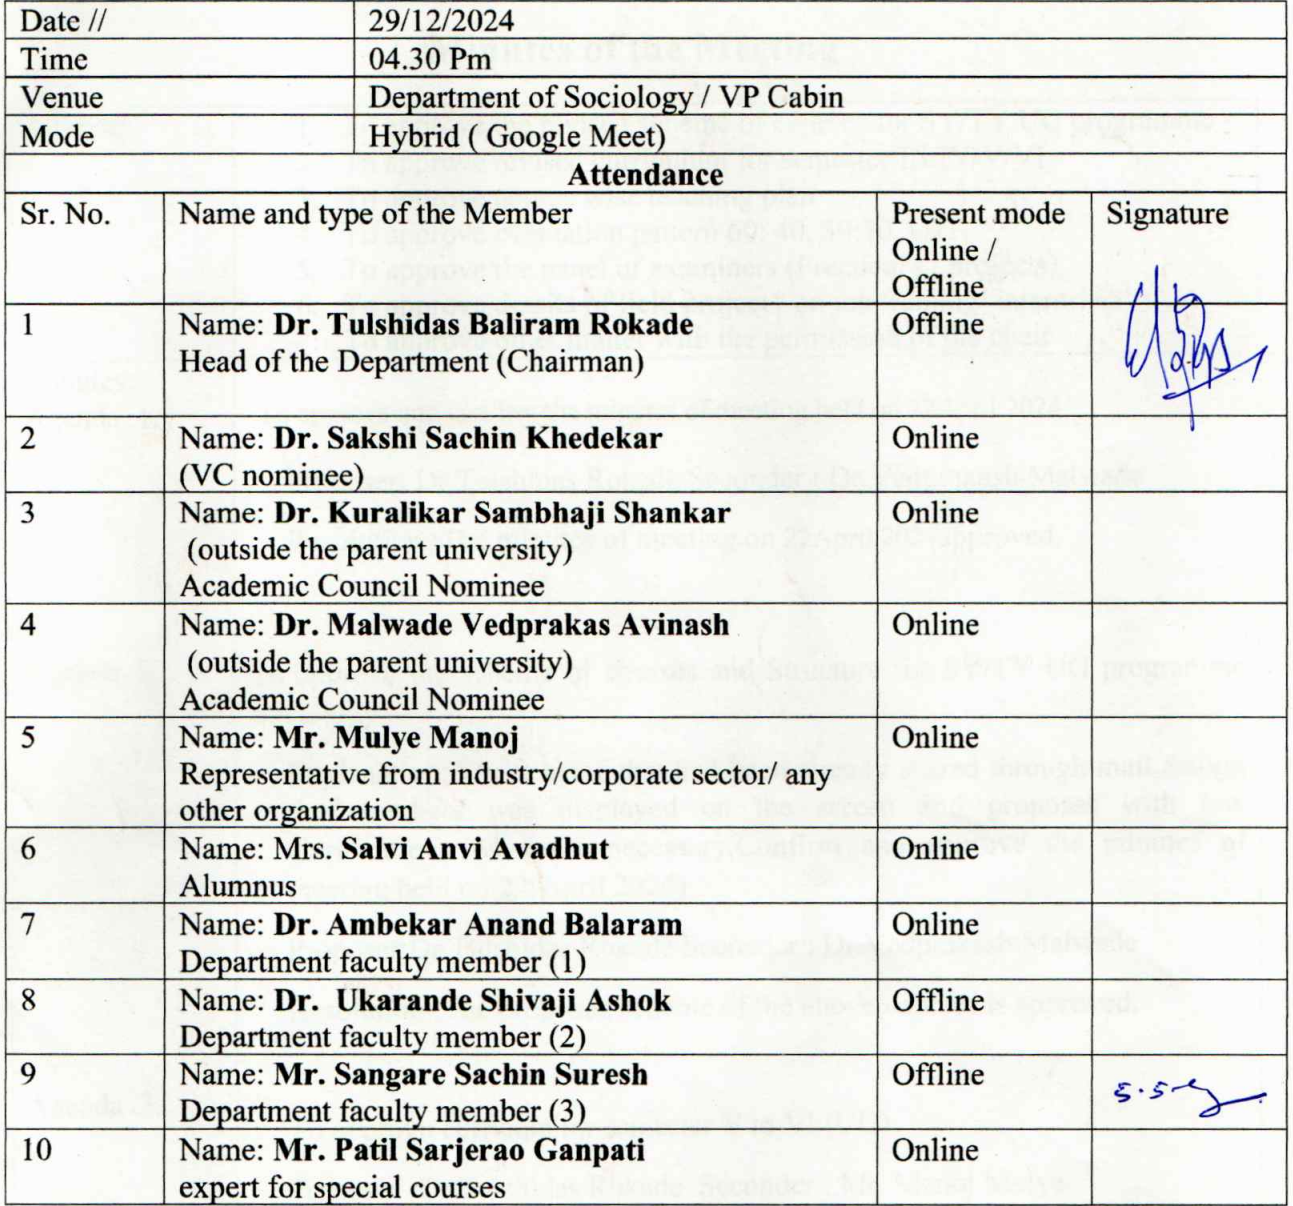 Date // 29/12/2024
Time 04.30 Pm
Venue Department of Sociology / VP Cabin
Mode Hybrid ( Google Meet)
Attendance
Sr. No. Name and type of the Member Present mode Signature
Online /
Offline
1 Name: Dr. Tulshidas Baliram Rokade Offline
Head of the Department (Chairman)
2 Name: Dr. Sakshi Sachin Khedekar Online
(VC nominee)
3 Name: Dr. Kuralikar Sambhaji Shankar Online
(outside the parent university)
Academic Council Nominee
4 Name: Dr. Malwade Vedprakas Avinash Online
(outside the parent university)
Academic Council Nominee
5 Name: Mr. Mulye Manoj Online
Representative from industry/corporate sector/ any
other organization
6 Name: Mrs. Salvi Anvi Avadhut Online
Alumnus
7 Name: Dr. Ambekar Anand Balaram Online
Department faculty member (1)
8 Name: Dr. Ukarande Shivaji Ashok Offline
Department faculty member (2)
9 Name: Mr. Sangare Sachin Suresh Offline
Department faculty member (3)
10 Name: Mr. Patil Sarjerao Ganpati Online
expert for special courses